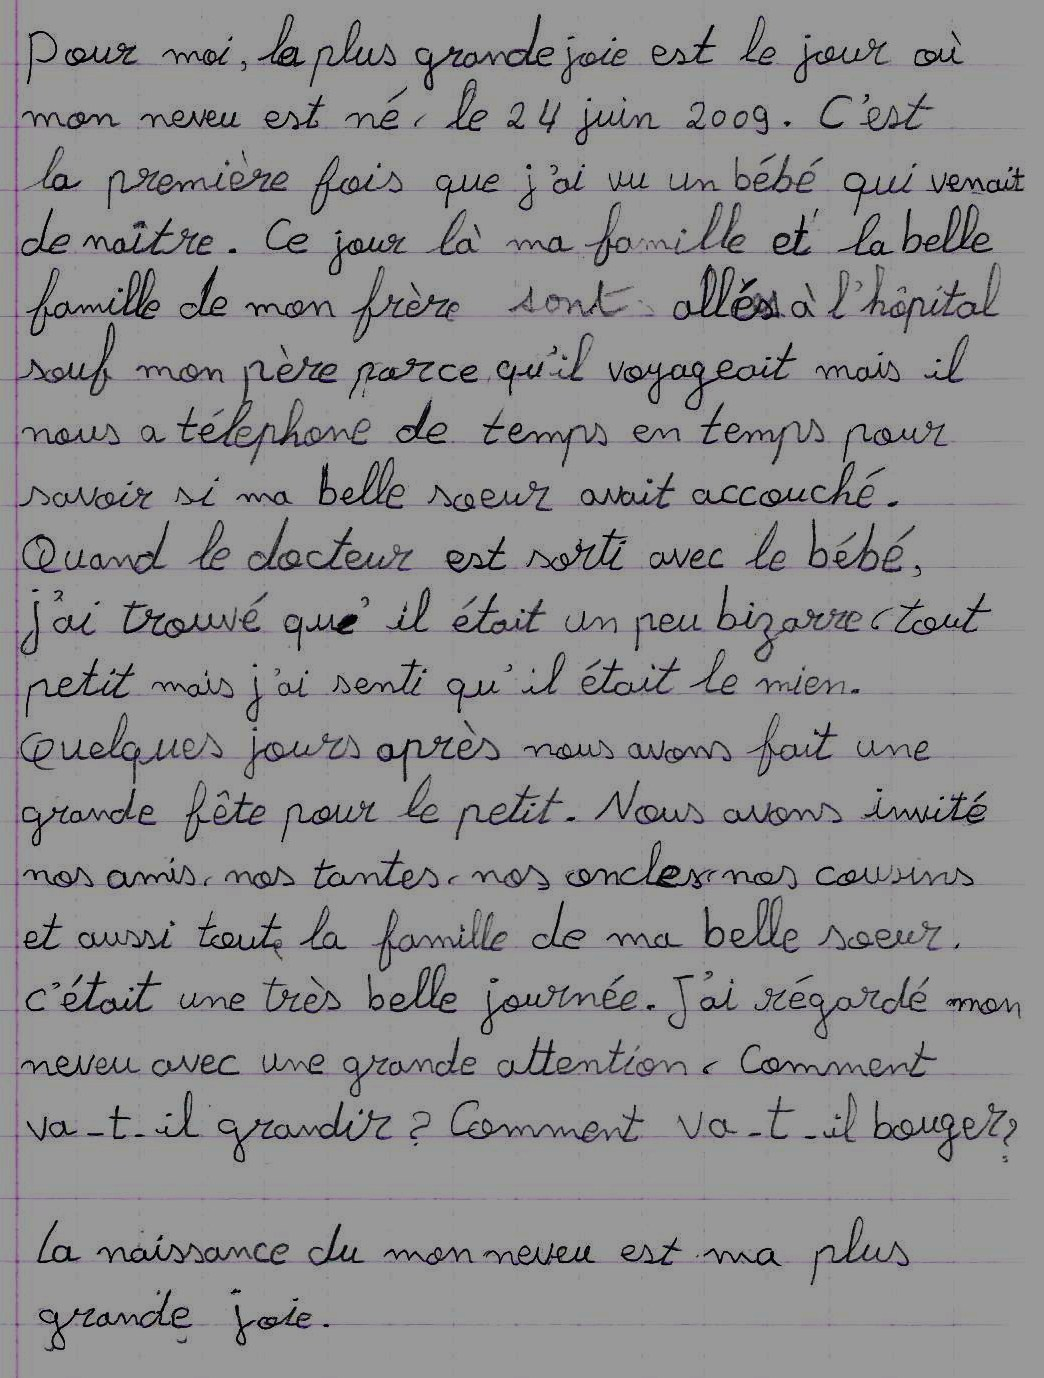 Pour moi, la plus grande joie est le jour où
mon neveu est né, le 24 juin 2009. C'est
la première fois que j'ai vu un bébé qui venait
de naître. Ce jour là ma famille et la belle
famille de mon frère sont allés à l'hôpital
sauf mon père parce qu'il voyageait mais il
nous a téléphone de temps en temps pour
savoir si ma belle soeur avait accouché.
Quand le docteur est sorti avec le bébé,
j'ai trouvé que' il était un peu bizarre, tout
petit mais j'ai senti qu'il était le mien.
Quelques jours après nous avons fait une
grande fête pour le petit. Nous avons invité
nos amis, nos tantes, nos oncles, nos cousins
et aussi toute la famille de ma belle soeur.
c'était une très belle journée. J'ai régardé mon
neveu avec une grande attention. Comment
va-t-il grandir? Comment va-t-il bouger?
La naissance du mon neveu est ma plus
grande joie.